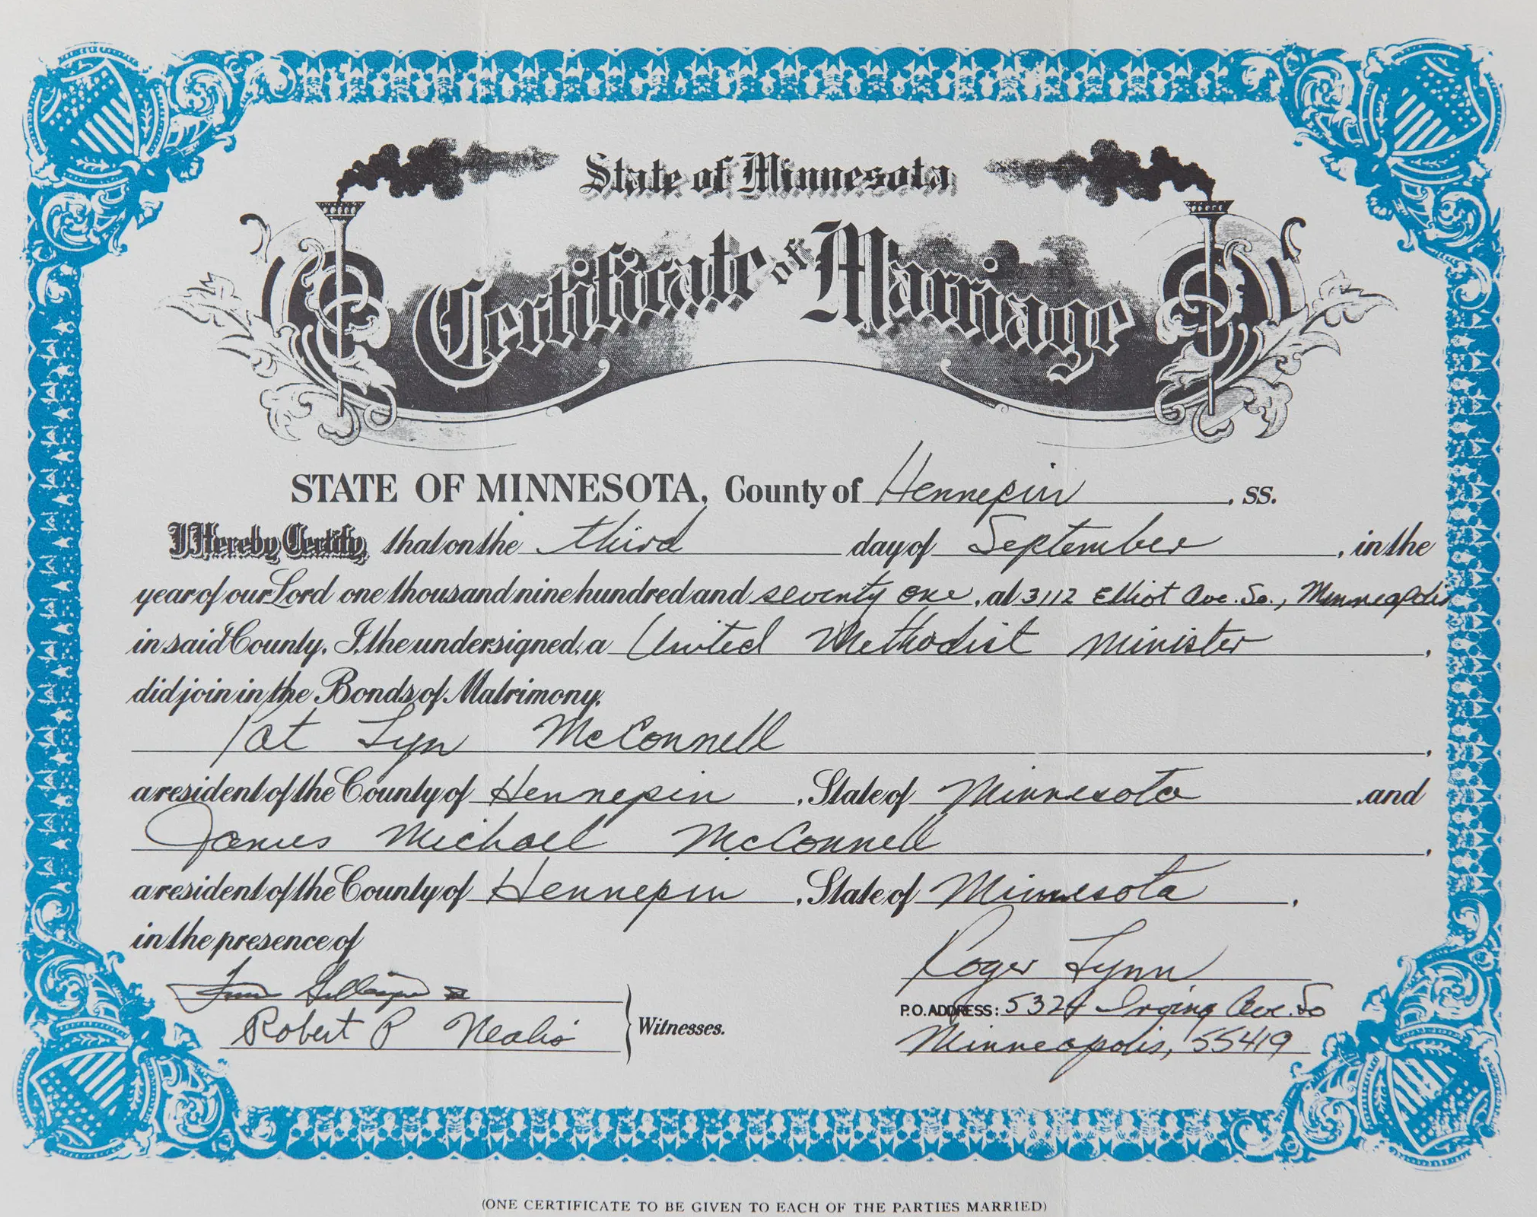 State of Minnesota
Certificate of Marriage
STATE OF MINNESOTA, County of Hennepin, ss.
I Hereby Certify that on the third day of September, in the
year of our Lord one thousand nine hundred and seventy one, at 3112 Elliot Ave. So., Minneapolis
in said County, I, the undersigned, a United Methodist Minister,
did join in the Bonds of Matrimony,
Pat Lyn McConnell,
a resident of the County of Hennepin, State of Minnesota, and
James Michael McConnell,
a resident of the County of Hennepin, State of Minnesota,
in the presence of
Roger Lynn
P.O. ADDRESS: 5324 Irving Ave. So
Robert P Nealis Witnesses.
Minneapolis, 55419
(ONE CERTIFICATE TO BE GIVEN TO EACH OF THE PARTIES MARRIED)